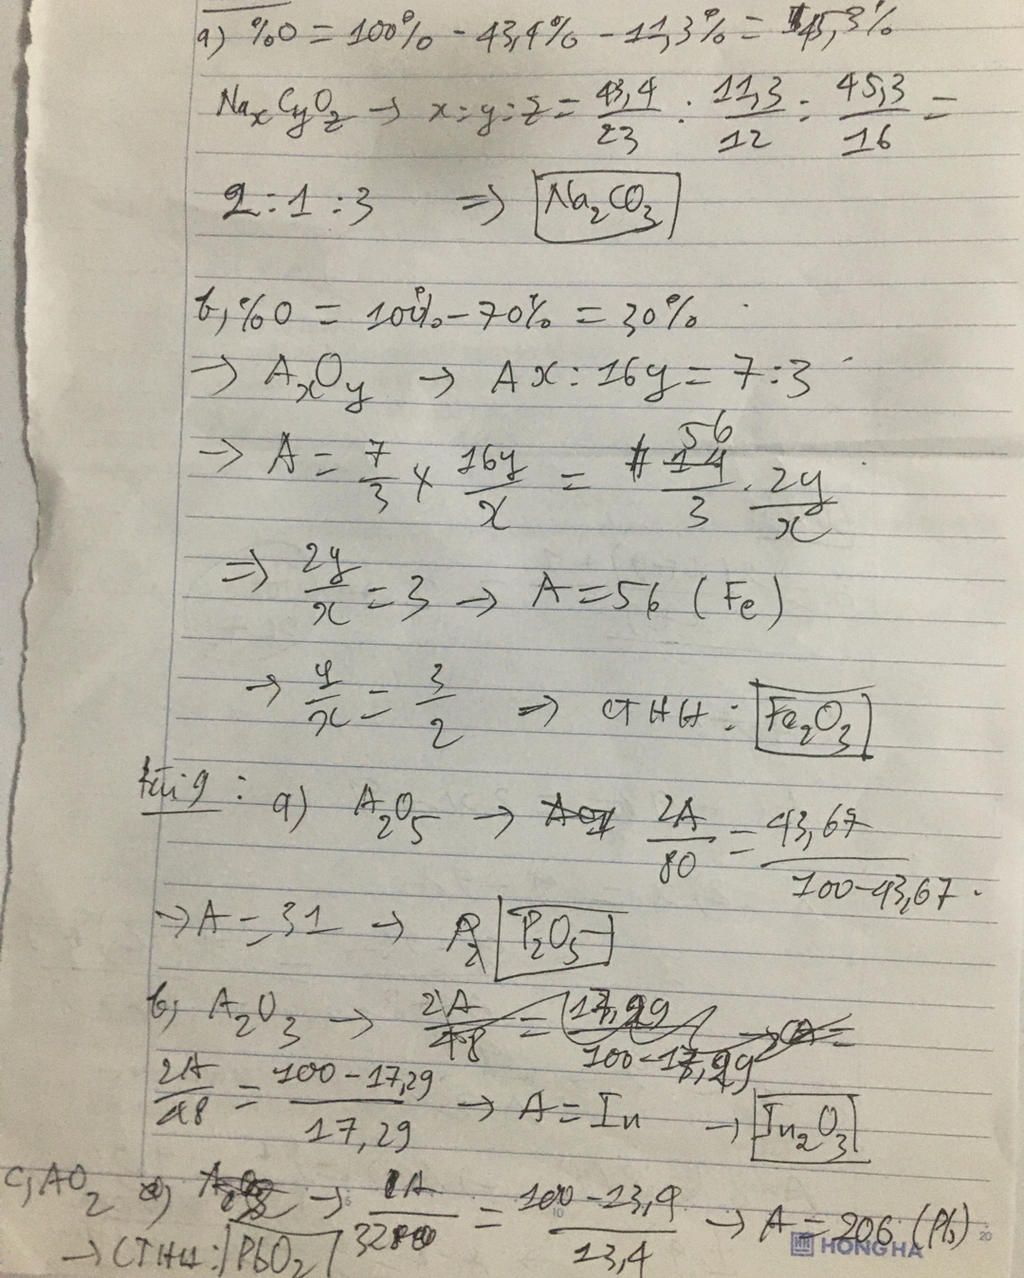 a) %O = 100% - 43,4% - 11,3% = 45,3%
NaxCyOz → x:y:z = 43,4/23 : 11,3/12 : 45,3/16 =
2:1:3 ⇒ Na2CO3
b, %O = 100% - 70% = 30%
→ AxOy → Ax : 16y = 7:3
→ A = 7/3 × 16y/x = 56/3 . 2y/x
⇒ 2y/x = 3 → A = 56 (Fe)
→ y/x = 3/2 ⇒ CTHH : Fe2O3
9 : a) A2O5 → 2A/80 = 43,67/(100-43,67)
→ A = 31 → P2O5
b, A2O3 → 2A/48 = 17,29/(100-17,29) → A =
2A/48 = (100-17,29)/17,29 → A = In → In2O3
c, AO2 → A/32 = (100-13,4)/13,4 → A = 206 (Pb)
→ CTHH : PbO2
HH HONG HA
10
20